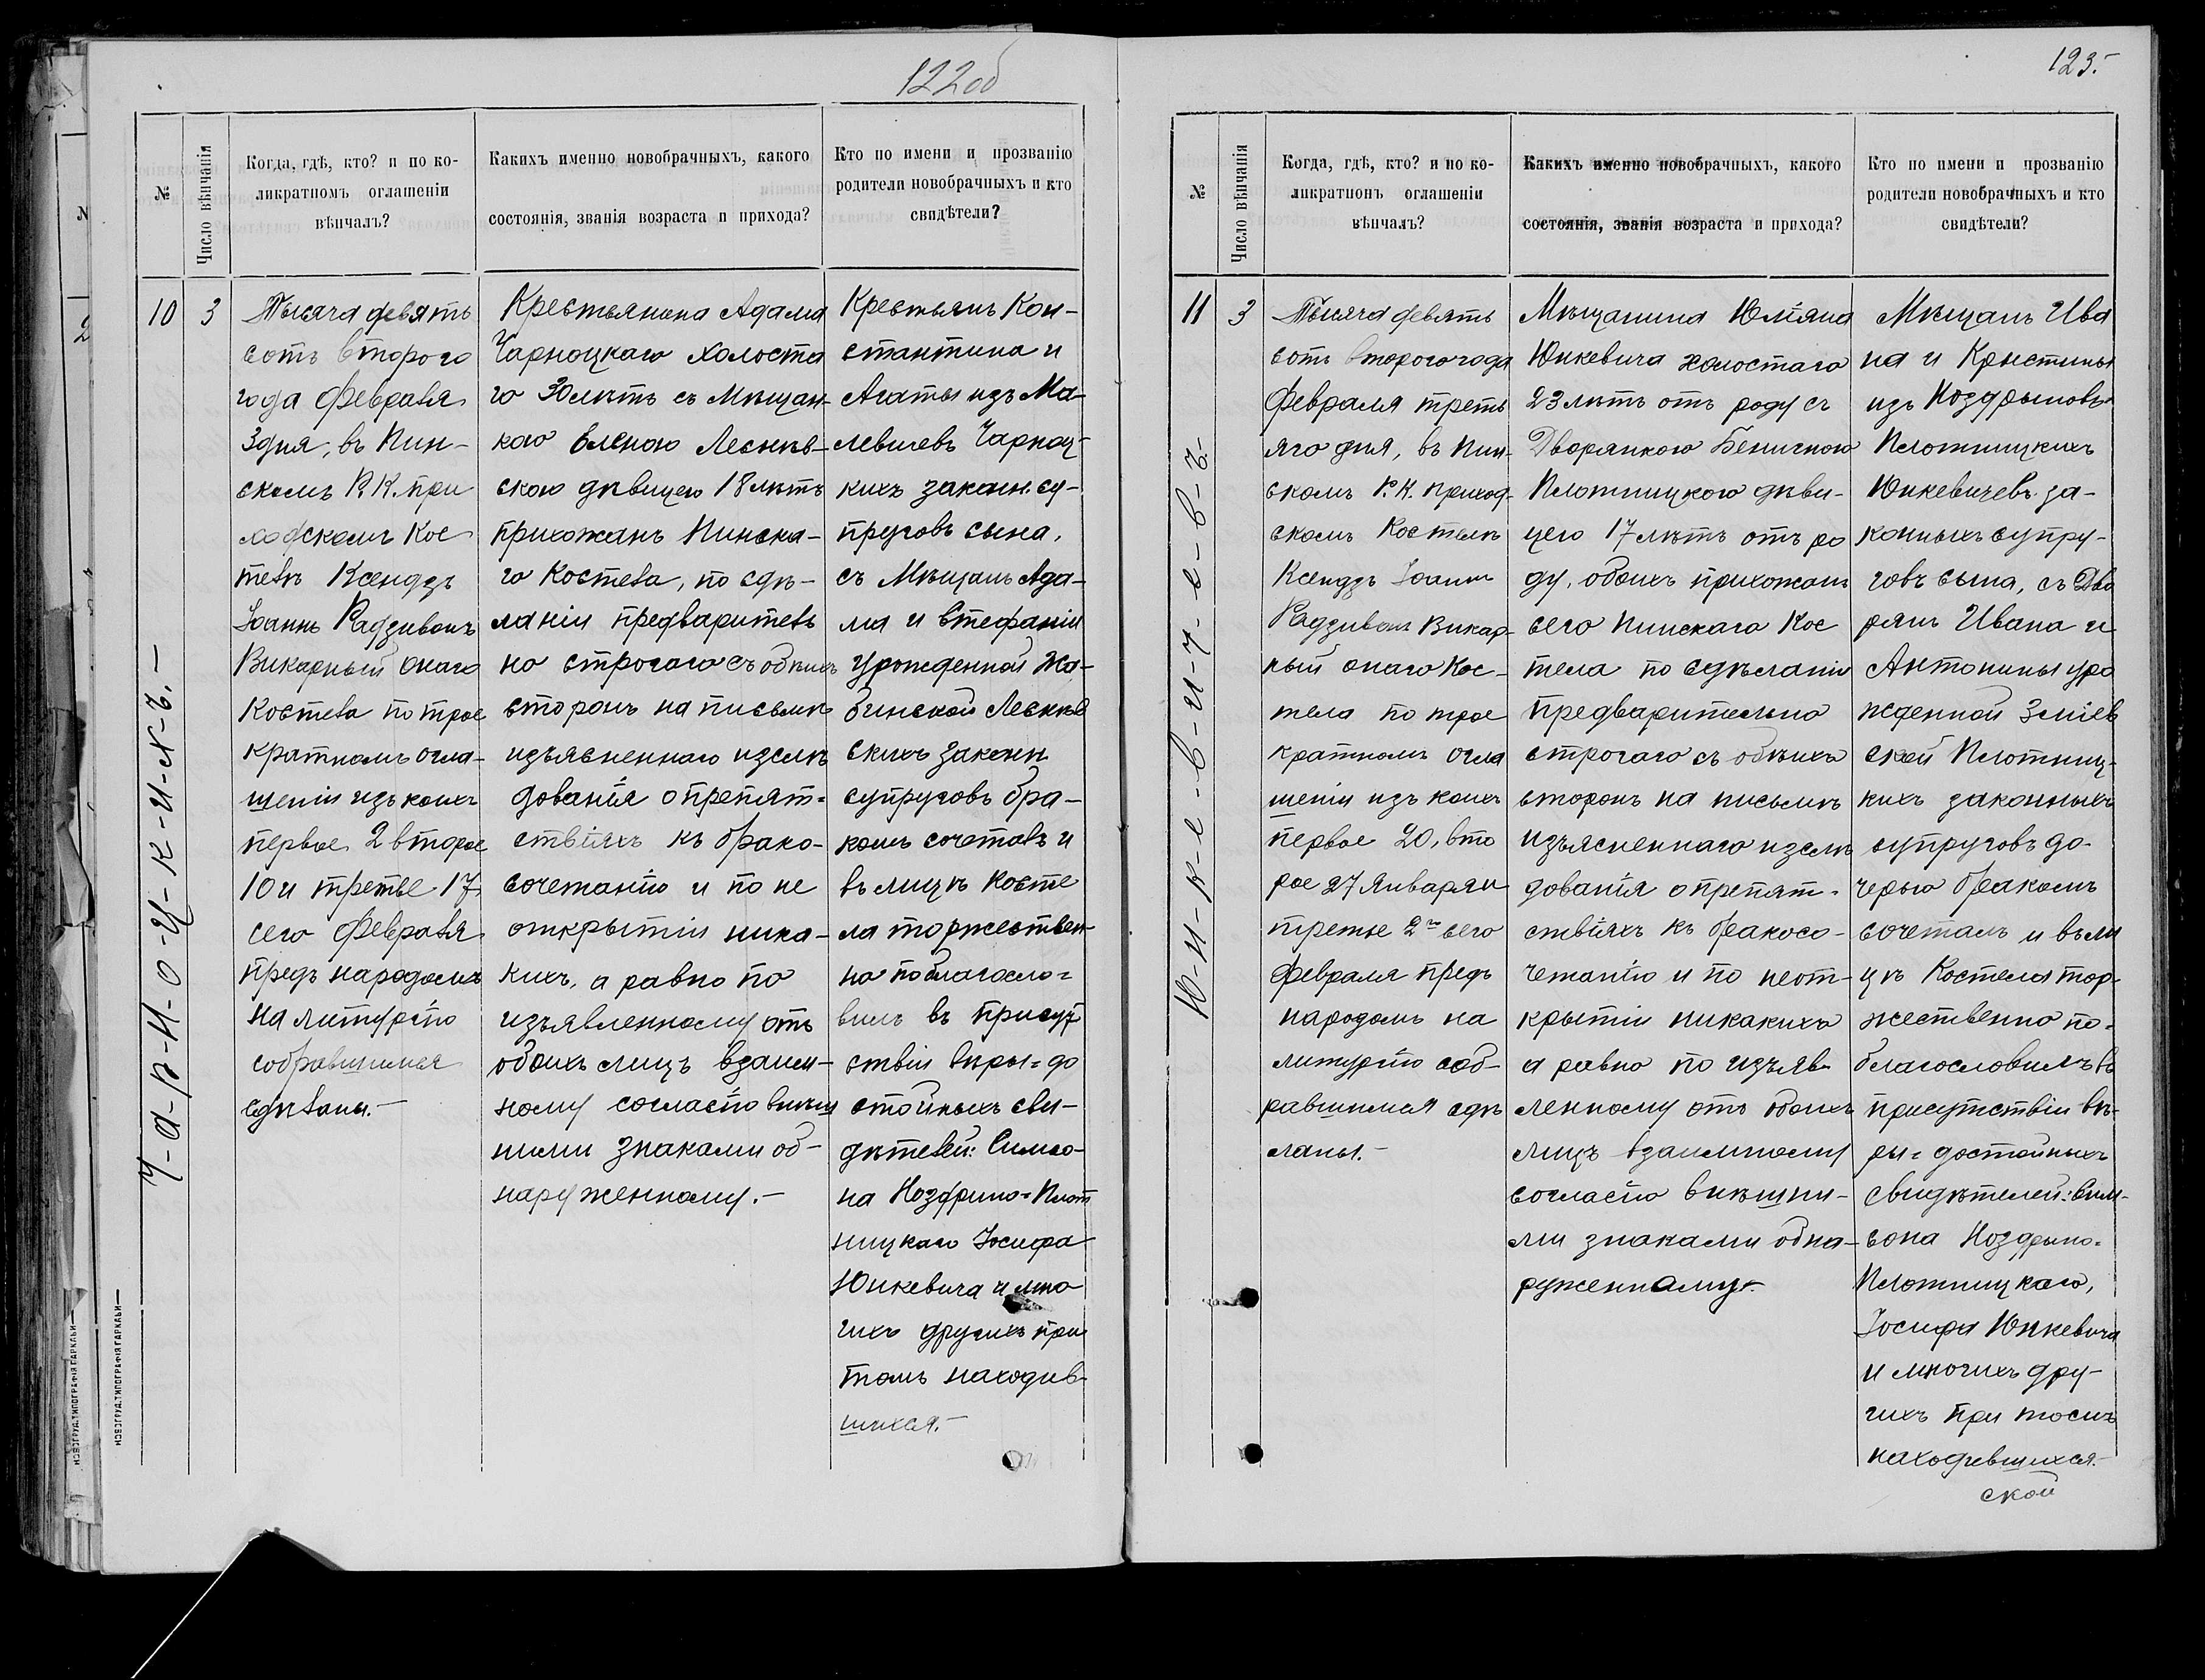 122об
№
Число вѣнчанія
Когда, гдѣ, кто? и по ко-
ликратномъ оглашеніи
вѣнчалъ?
Какихъ именно новобрачныхъ, какого
состоянія, званія возраста и прихода?
Кто по имени и прозванію
родители новобрачныхъ и кто
свидѣтели?
10
3
Ч-а-р-н-о-ц-к-и-х-ъ.-
Тысяча девять
сотъ второго
года Февраля
3 дня, въ Пин-
скомъ Р. К. при
ходскомъ Кос
телѣ Ксендзъ
Іоаннъ Радзивонъ
Викарный онаго
Костела по трое
кратномъ огла-
шеніи изъ коихъ
первое 2 второе
10 и третье 17
сего Февраля
предъ народомъ
на литургію
собравшимся
сдѣланы.-
Крестьянина Адама
Чарноцкаго холоста
го 30 лѣтъ съ Мѣщан-
кою Еленою Леснев-
скою дѣвицею 18 лѣтъ
прихожанъ Пинска-
го Костела, по сдѣ-
ланіи предваритель
но строгаго съ обѣихъ
сторонъ на письмѣ
изъясненнаго изслѣ
дованія о препят-
ствіяхъ къ брако-
сочетанію и по не
открытіи ника-
кихъ, а равно по
изъявленному отъ
обоихъ лицъ взаим-
ному согласію внѣш
ними знаками об-
наруженному.-
Крестьянъ Кон-
стантина и
Агаты изъ Ма-
левичевъ Чарноц-
кихъ законн. су-
пруговъ сына,
съ Мѣщанъ Ада-
ма и Стефаніи
урожденной Жа-
бинской Леснев
скихъ законн
супруговъ бра-
комъ сочеталъ и
въ лицѣ Косте
ла торжествен-
но поблагосло-
вилъ въ присут
ствіи вѣры-до
стойныхъ сви-
дѣтелей: Симео-
на Ноздрино-Плот
ницкаго Іосифа
Юнкевича и мно
гихъ другихъ при
томъ находив-
шихся.-
НОВОГРУД. ТИПОГРАФІЯ ГАРКАВИ
НОВОГРУД. ТИПОГРАФІЯ ГАРКАВИ
123.-
№
Число вѣнчанія
Когда, гдѣ, кто? и по ко-
ликратномъ оглашеніи
вѣнчалъ?
Какихъ именно новобрачныхъ, какого
состоянія, званія возраста и прихода?
Кто по имени и прозванію
родители новобрачныхъ и кто
свидѣтели?
11
3
Ю-н-к-е-в-и-ч-е-в-ъ.-
Тысяча девять
сотъ второго года
Февраля треть
яго дня, въ Пин-
скомъ Р. К. приход-
скомъ Костелѣ
Ксендзъ Іоаннъ
Радзивонъ Викар-
ный онаго Кос-
тела по трое
кратномъ огла
шеніи изъ коихъ
первое 20, вто
рое 27 Января и
третье 2го сего
Февраля предъ
народомъ на
литургію соб-
равшимся сдѣ
ланы.-
Мѣщанина Юліяна
Юнкевича холостаго
23 лѣтъ отъ роду съ
Дворянкою Бенигною
Плотницкою дѣви-
цею 17 лѣтъ отъ ро
ду, обоихъ прихожанъ
сего Пинскаго Кос
тела по сдѣланіи
предварительно
строгаго съ обѣихъ
сторонъ на письмѣ
изъясненнаго изслѣ
дованія о препят-
ствіяхъ къ бракосо-
четанію и по неот-
крытіи никакихъ
а равно по изъяв-
ленному отъ обоихъ
лицъ взаимному
согласію внѣшни-
ми знаками обна-
руженному.-
Мѣщанъ Ива
на и Кристины
изъ Ноздрыновъ
Плотницкихъ
Юнкевичевъ за-
конныхъ супру-
говъ сына, съ Дво
рянъ Ивана и
Антонины уро
жденной Зміев
ской Плотниц-
кихъ законныхъ
супруговъ до-
черью бракомъ
сочеталъ и въ ли
цѣ Костела тор-
жественно по-
благословилъ въ
присутствіи вѣ-
ры-достойныхъ
свидѣтелей: Сим-
еона Ноздрыно-
Плотницкаго,
Іосифа Юнкевича
и многихъ дру-
гихъ при томъ
находившихся.-
ской